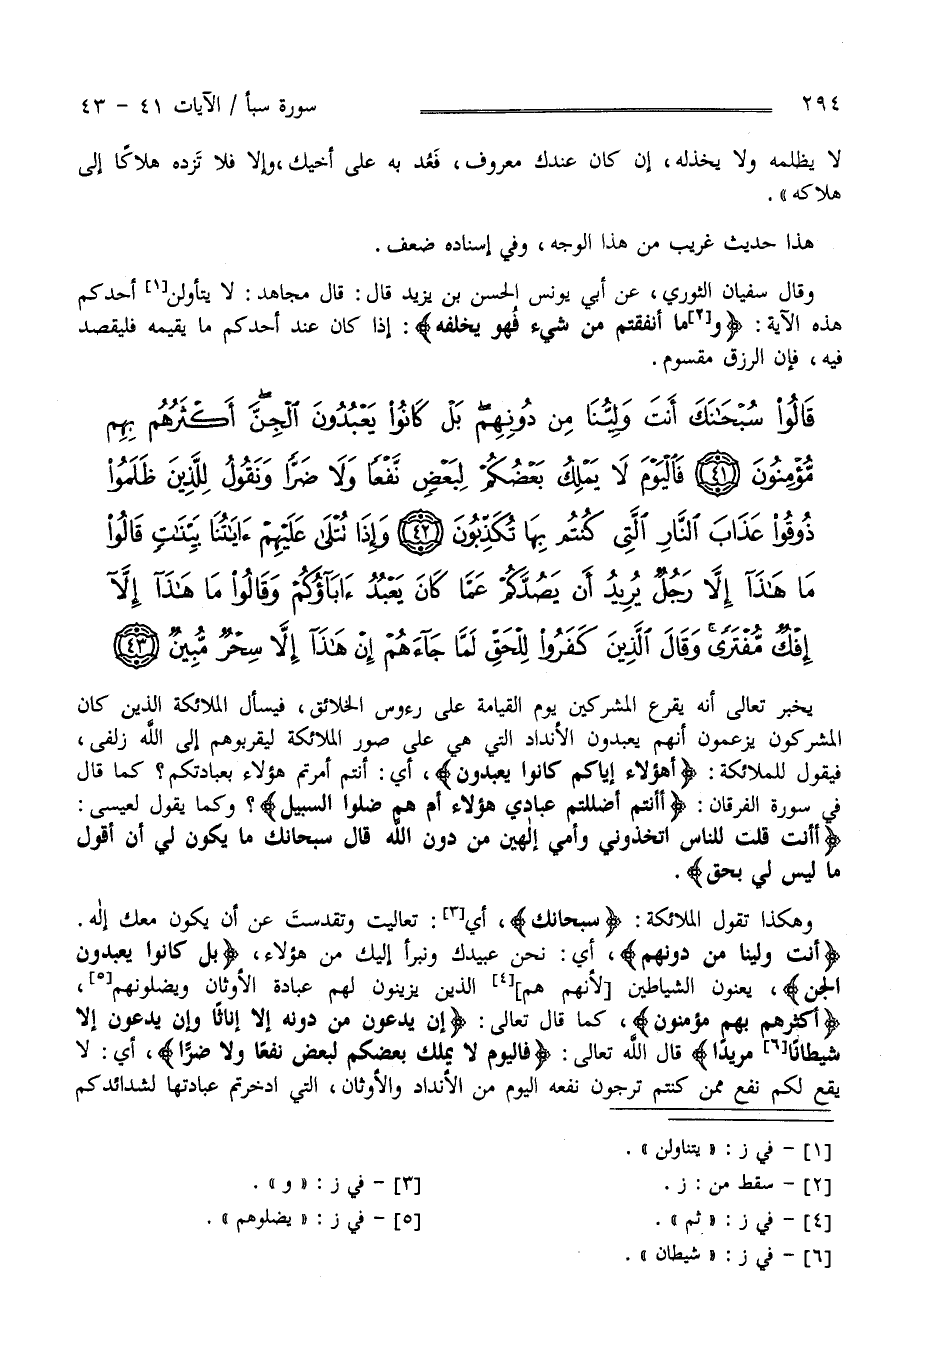 ٢٩٤ سورة سبأ / الآيات ٤١ - ٤٣
لا يظلمه ولا يخذله، إن كان عندك معروف، فَعُد به على أخيك،وإلا فلا تَزده هلاكًا إلى
هلاكه».
هذا حديث غريب من هذا الوجه، وفي إسناده ضعف.
وقال سفيان الثوري، عن أبي يونس الحسن بن يزيد قال: قال مجاهد: لا يتأولن[١] أحدكم
هذه الآية: ﴿و[٢]ما أنفقتم من شيء فُهو يخلفه﴾: إذا كان عند أحدكم ما يقيمه فليقصد
فيه، فإن الرزق مقسوم.
قَالُوا۟ سُبْحَـٰنَكَ أَنتَ وَلِيُّنَا مِن دُونِهِم ۖ بَلْ كَانُوا۟ يَعْبُدُونَ ٱلْجِنَّ ۖ أَكْثَرُهُم بِهِم
مُّؤْمِنُونَ ﴿٤١﴾ فَٱلْيَوْمَ لَا يَمْلِكُ بَعْضُكُمْ لِبَعْضٍ نَّفْعًا وَلَا ضَرًّا وَنَقُولُ لِلَّذِينَ ظَلَمُوا۟
ذُوقُوا۟ عَذَابَ ٱلنَّارِ ٱلَّتِى كُنتُم بِهَا تُكَذِّبُونَ ﴿٤٢﴾ وَإِذَا تُتْلَىٰ عَلَيْهِمْ ءَايَـٰتُنَا بَيِّنَـٰتٍ قَالُوا۟
مَا هَـٰذَآ إِلَّا رَجُلٌ يُرِيدُ أَن يَصُدَّكُمْ عَمَّا كَانَ يَعْبُدُ ءَابَآؤُكُمْ وَقَالُوا۟ مَا هَـٰذَآ إِلَّآ
إِفْكٌ مُّفْتَرًى ۚ وَقَالَ ٱلَّذِينَ كَفَرُوا۟ لِلْحَقِّ لَمَّا جَآءَهُمْ إِنْ هَـٰذَآ إِلَّا سِحْرٌ مُّبِينٌ ﴿٤٣﴾
يخبر تعالى أنه يقرع المشركين يوم القيامة على رءوس الخلائق، فيسأل الملائكة الذين كان
المشركون يزعمون أنهم يعبدون الأنداد التي هي على صور الملائكة ليقربوهم إلى اللَّه زلفى،
فيقول للملائكة: ﴿أهؤلاء إياكم كانوا يعبدون﴾، أي: أنتم أمرتم هؤلاء بعبادتكم؟ كما قال
في سورة الفرقان: ﴿أأنتم أضللتم عبادي هؤلاء أم هم ضلوا السبيل﴾؟ وكما يقول لعيسى:
﴿أأنت قلت للناس اتخذوني وأمي إلٰهين من دون اللَّه قال سبحانك ما يكون لي أن أقول
ما ليس لي بحق﴾.
وهكذا تقول الملائكة: ﴿سبحانك﴾، أي[٣]: تعاليت وتقدستَ عن أن يكون معك إلٰه.
﴿أنت ولينا من دونهم﴾، أي: نحن عبيدك ونبرأ إليك من هؤلاء، ﴿بل كانوا يعبدون
الجن﴾، يعنون الشياطين [لأنهم هم][٤] الذين يزينون لهم عبادة الأوثان ويضلونهم[٥]،
﴿أكثرهم بهم مؤمنون﴾، كما قال تعالى: ﴿إن يدعون من دونه إلا إناثًا وإن يدعون إلا
شيطانًا[٦] مريدًا﴾ قال اللَّه تعالى: ﴿فاليوم لا يملك بعضكم لبعض نفعًا ولا ضرًّا﴾، أي: لا
يقع لكم نفع ممن كنتم ترجون نفعه اليوم من الأنداد والأوثان، التي ادخرتم عبادتها لشدائدكم
[١] - في ز: «يتناولن».
[٢] - سقط من: ز. [٣] - في ز: «و».
[٤] - في ز: «ثم». [٥] - في ز: «يضلوهم».
[٦] - في ز: «شيطان».